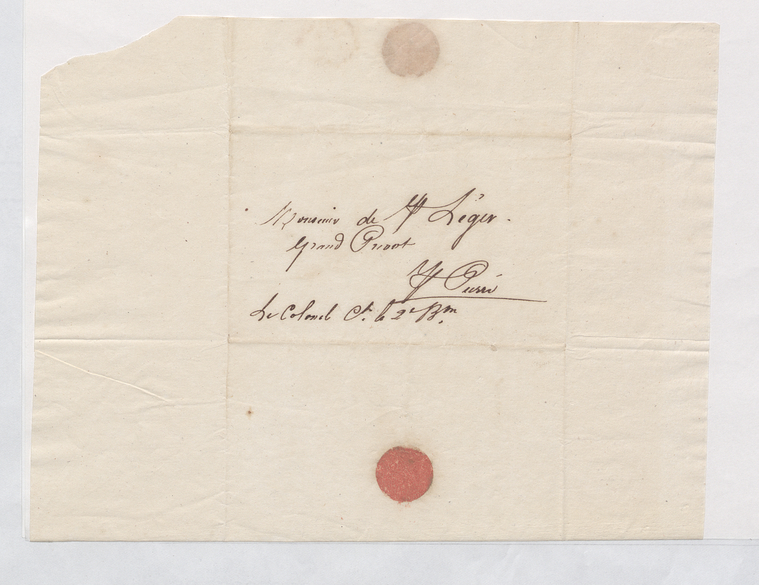 Monsieur de St Léger.
Grand Prevot
St Pierre
Le Colonel Ct. le 2e Bm.